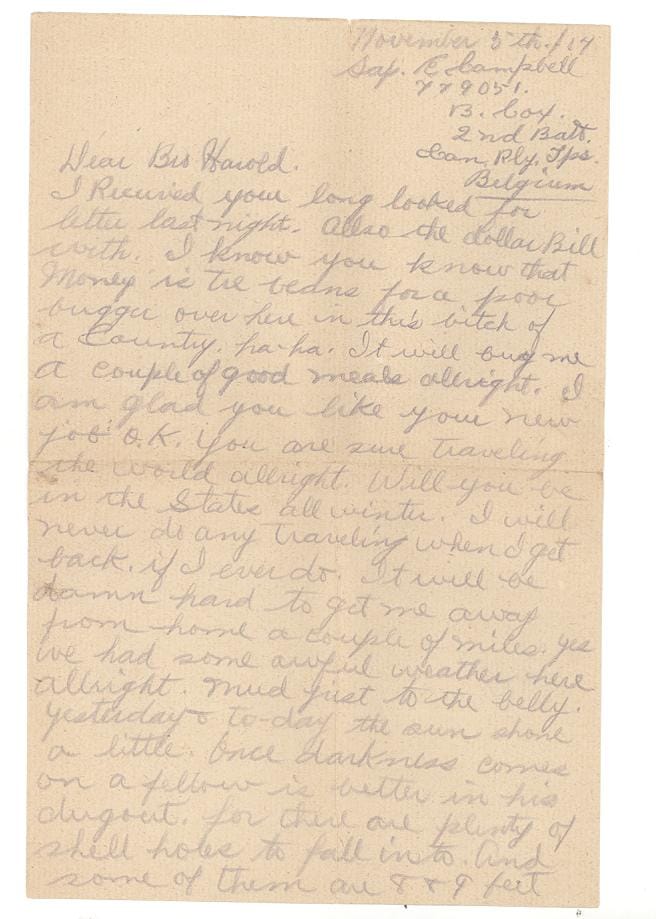 November 5th /17
Sap. E Campbell
779051.
B. Coy.
2nd Batt.
Can. Rly. Tps.
Belgium
Dear Bro Harold.
I Received your long looked for
letter last night. Allso the dollar Bill
with. I know you know that
Money is the beans for a poor
bugger over here in this bitch of
a County. ha-ha. It will buy me
a couple of good meals allright. I
am glad you like your new
job O.K. you are sure traveling
the world allright. Will you be
in the States all winter. I will
never do any traveling when I get
back. if I ever do. It will be
damn hard to get me away
from home a couple of miles. yes
we had some awful weather here
allright. mud just to the belly.
yesterday & to-day the sun shone
a little. Once darkness comes
on a fellow is better in his
dugout. for there are plenty of
shell holes to fall into. And
some of them are 8 & 9 feet